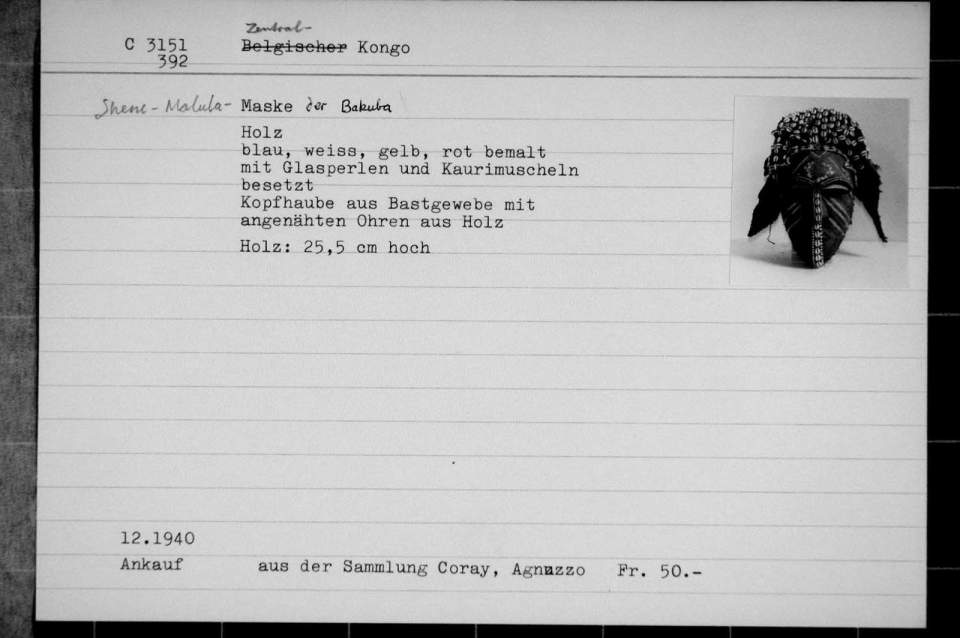 Zentral-
C 3151 Belgischer Kongo
392
Shene-Malula- Maske der Bakuba
Holz
blau, weiss, gelb, rot bemalt
mit Glasperlen und Kaurimuscheln
besetzt
Kopfhaube aus Bastgewebe mit
angenähten Ohren aus Holz
Holz: 25,5 cm hoch
12.1940
Ankauf aus der Sammlung Coray, Agnuzzo Fr. 50.-